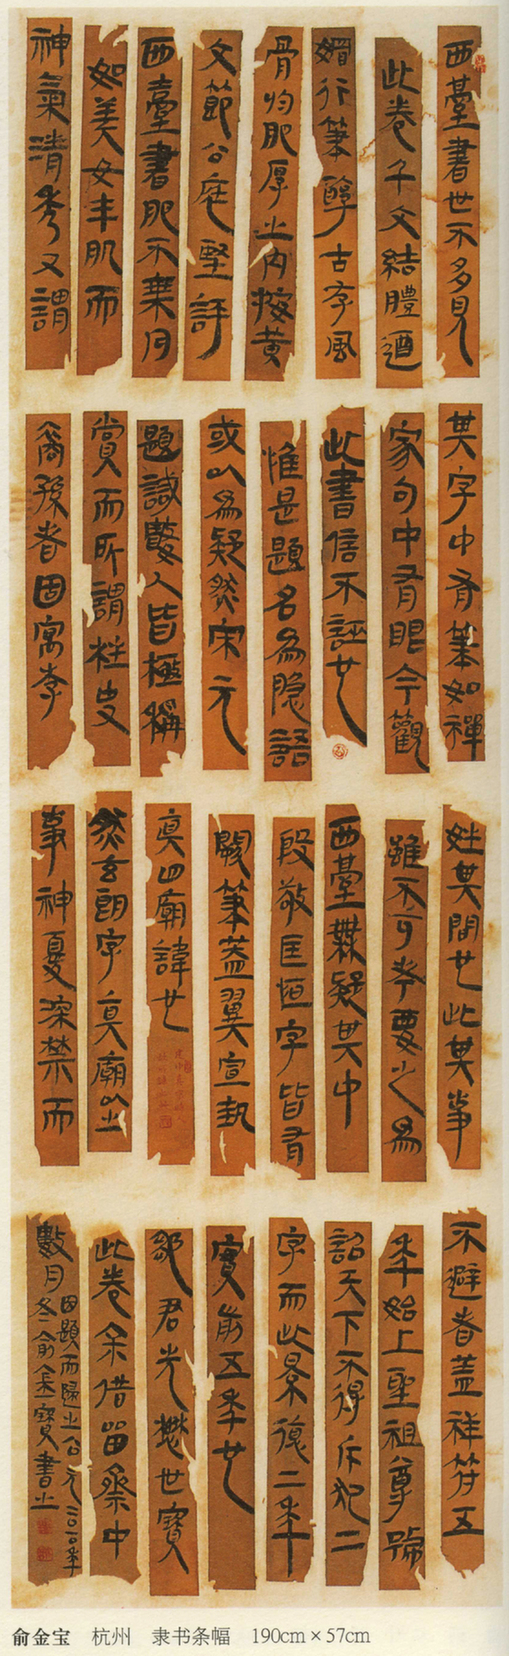 西臺書世不多見
此卷千文結體遒
媚行筆醇古存風
骨均肥厚之内按黄
文節公庭堅評
西臺書肥不乗肉
如美女丰肌而
神氣清秀又謂
其字中有筆如禪
家句中有眼今觀
此書信不誣也
惟是題名為隐語
或以為疑然宋元
題識數人皆極稱
賞而所謂柱史
裔孫者固寓李
姓其間也此其事
雖不可考要之為
西臺無疑其中
殷敬匡恒字皆有
闕筆蓋翼宣執
真四廟諱也
然玄朗字真廟以之
事神夏深禁而
不避者蓋祥符五
年始上聖祖尊號
詔天下不得斥犯二
字而此景復二年
實前五年也
鄒君光懋世寶
此卷余借留齋中
數月
因題而歸之公元二〇一〇年
冬俞金寶書之
俞金宝 杭州 隶书条幅 190cm×57cm